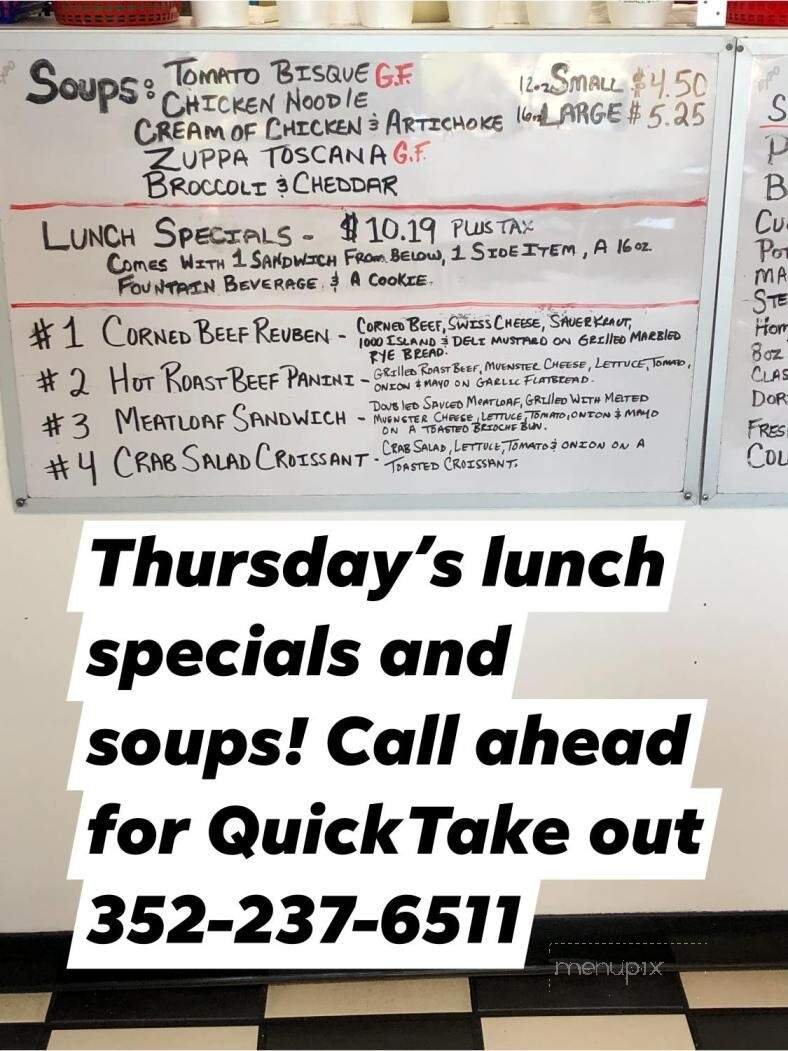 SOUPS: TOMATO BISQUE G.F.
12oz SMALL $4.50
CHICKEN NOODLE
16oz LARGE $5.25
CREAM OF CHICKEN & ARTICHOKE
ZUPPA TOSCANA G.F.
BROCCOLI & CHEDDAR
LUNCH SPECIALS - $10.19 PLUS TAX
COMES WITH 1 SANDWICH FROM BELOW, 1 SIDE ITEM, A 16oz.
FOUNTAIN BEVERAGE & A COOKIE.
#1 CORNED BEEF REUBEN - CORNED BEEF, SWISS CHEESE, SAUERKRAUT,
1000 ISLAND & DELI MUSTARD ON GRILLED MARBLED
RYE BREAD.
#2 HOT ROAST BEEF PANINI - GRILLED ROAST BEEF, MUENSTER CHEESE, LETTUCE, TOMATO,
ONION & MAYO ON GARLIC FLATBREAD.
#3 MEATLOAF SANDWICH - DOUBLED SAUCED MEATLOAF, GRILLED WITH MELTED
MUENSTER CHEESE, LETTUCE, TOMATO, ONION & MAYO
ON A TOASTED BRIOCHE BUN.
#4 CRAB SALAD CROISSANT - CRAB SALAD, LETTUCE, TOMATO & ONION ON A
TOASTED CROISSANT.
S
P
B
CU
POT
MA
STE
HOM
8oz
CLAS
DOR
FRES
COL
Thursday's lunch
specials and
soups! Call ahead
for Quick Take out
352-237-6511
menupix